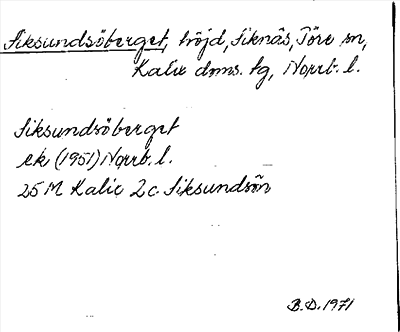 Siksundsöberget, höjd, Siknäs, Töre sn,
Kalix dms. tg, Norrb. l.
Siksundsöberget
ek (1951) Norrb. l.
25 M Kalix 2 c. Siksundsön
B.D. 1971